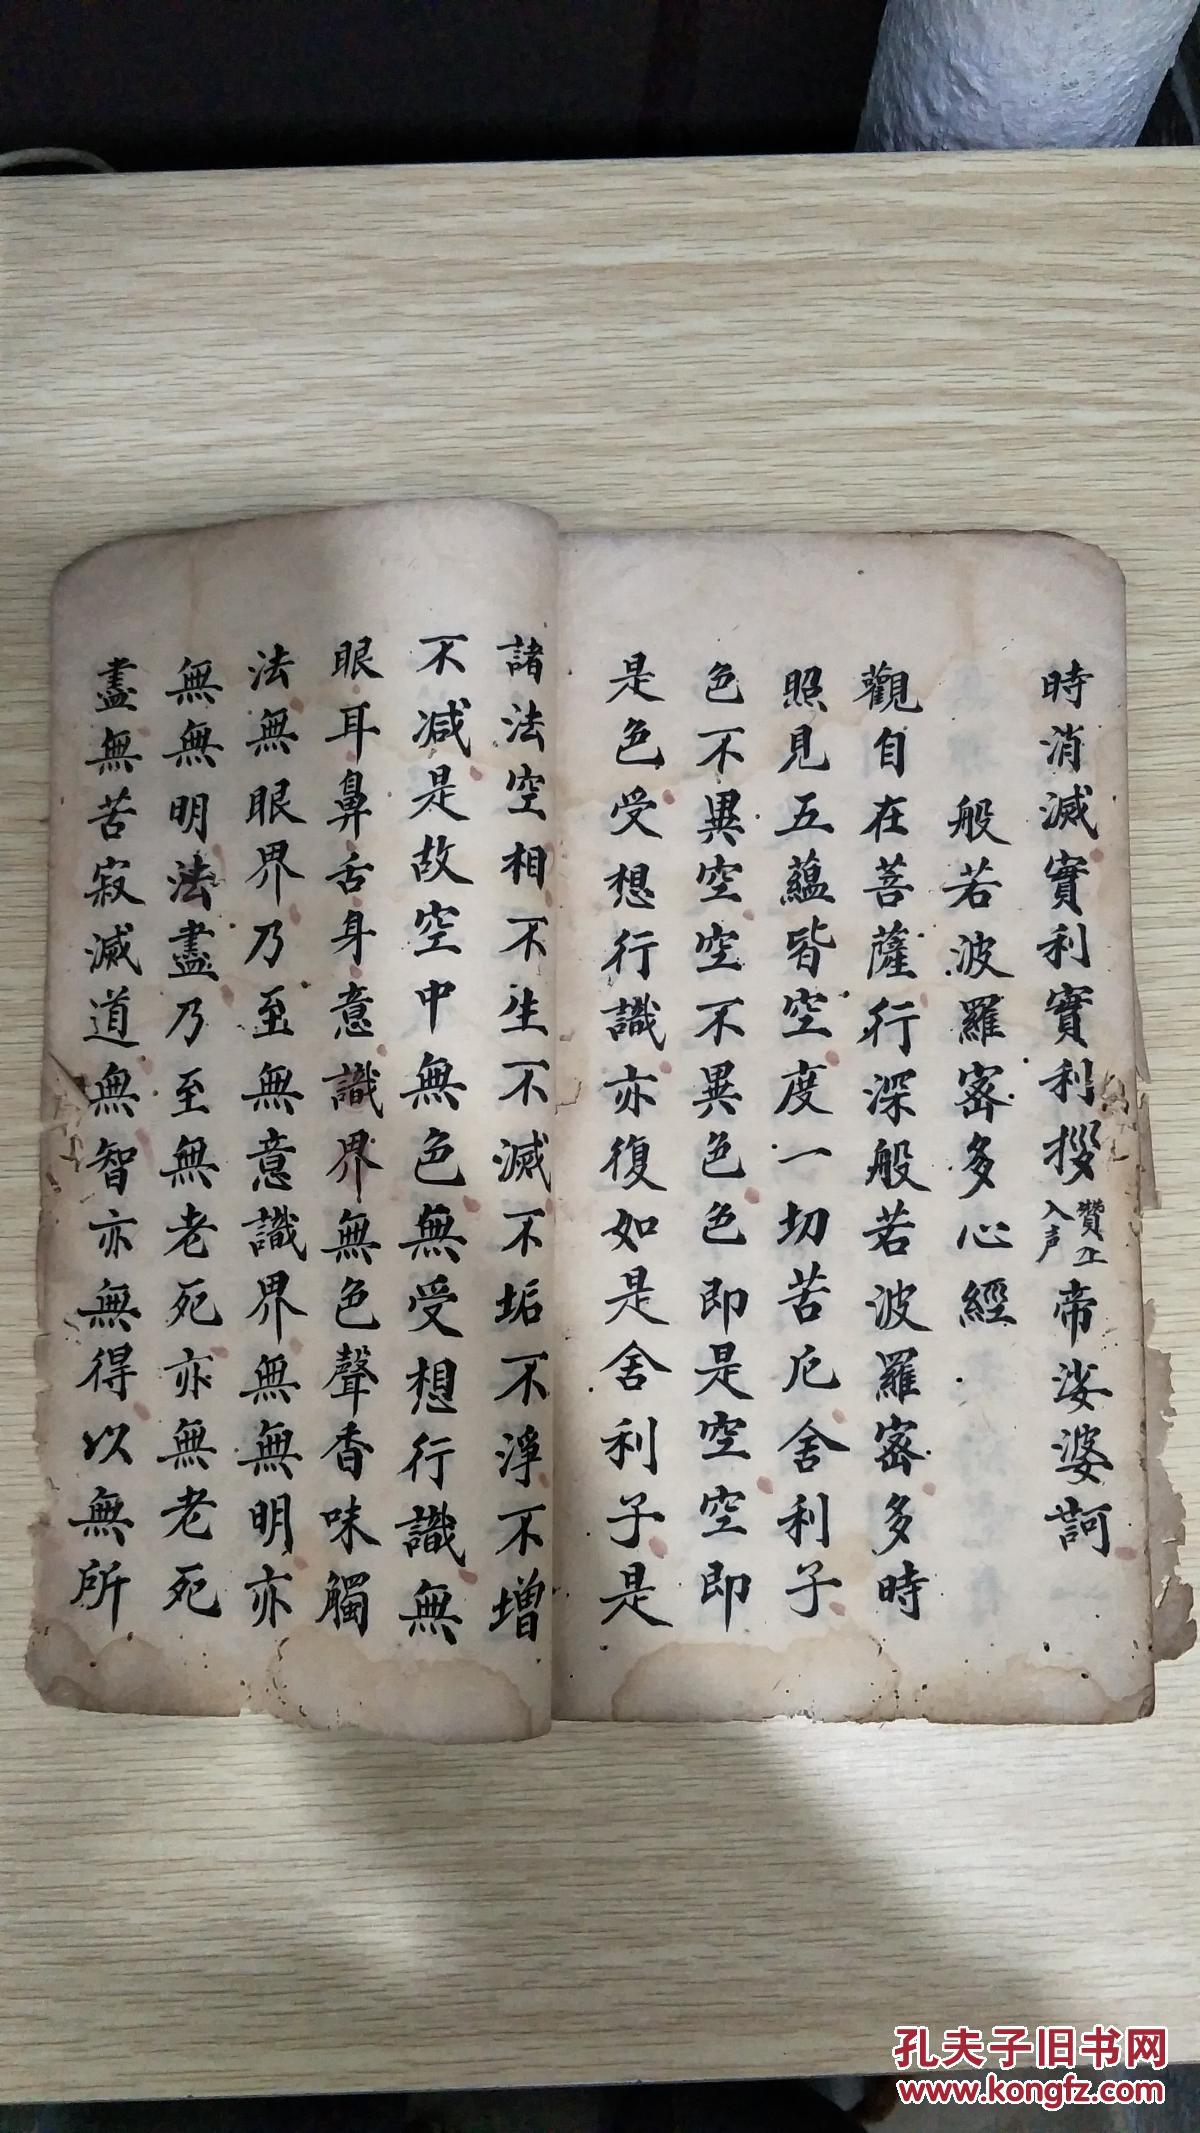 時消滅實利實利拶贊上入声帝娑婆訶
般若波羅密多心經
觀自在菩薩行深般若波羅密多時
照見五蘊皆空度一切苦厄舍利子
色不異空空不異色色即是空空即
是色受想行識亦復如是舍利子是
諸法空相不生不滅不垢不淨不增
不減是故空中無色無受想行識無
眼耳鼻舌身意識界無色聲香味觸
法無眼界乃至無意識界無無明亦
無無明法盡乃至無老死亦無老死
盡無苦寂滅道無智亦無得以無所
孔夫子旧书网
www.kongfz.com